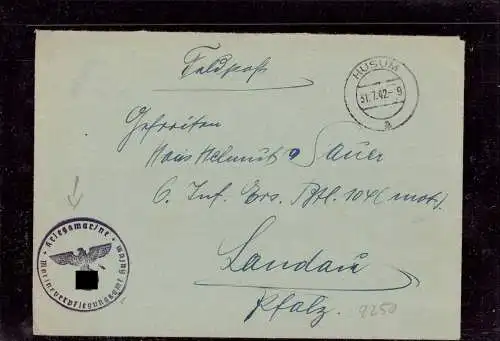 Feldpost
HUSUM
31.7.42-9
a
Gefreiten
Hans Helmuth Sauer
6. Inf. Ers. Btl. 104 (mot.)
Landau
Pfalz.
8250
Kriegsmarine
Marineverpflegungsamt Husum